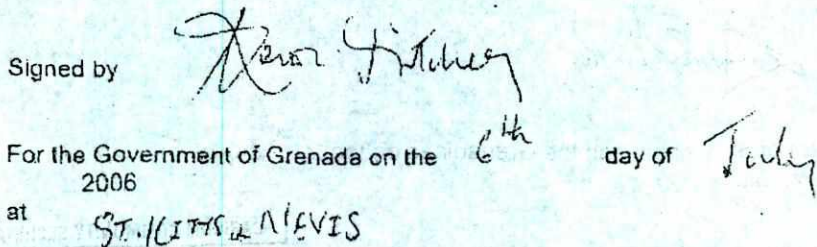 Signed by
For the Government of Grenada on the 6th day of July
2006
at ST. KITTS & NEVIS